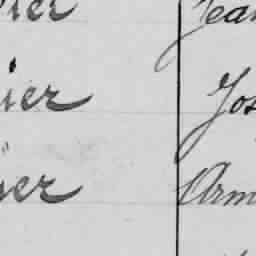 ier Jean
ier Jos
ier Arm